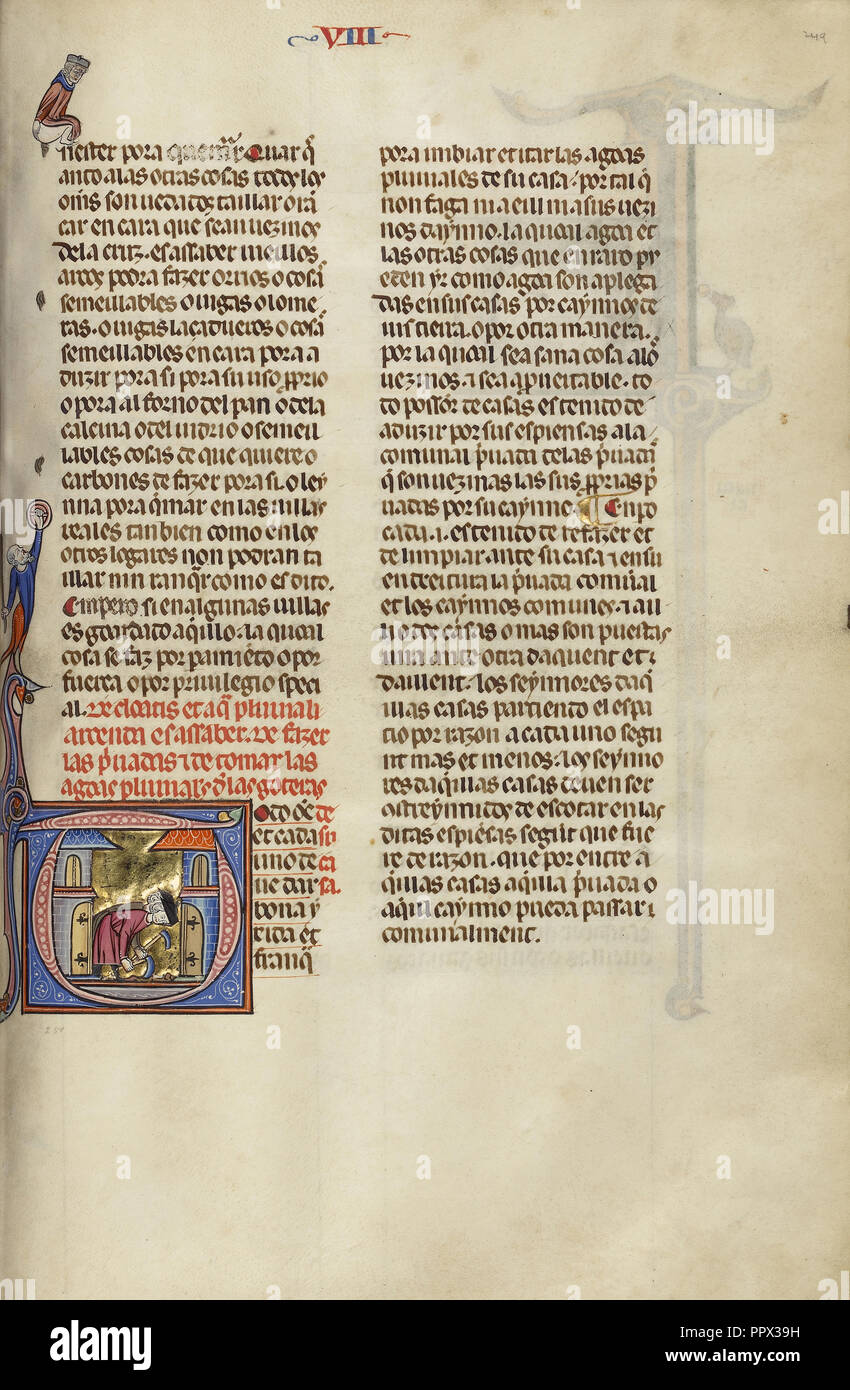 VIII
249
nester pora quemar Quar q̄
anto a las otras cosas todos los
om̄s son uedados taillar o ran
car en cara que sean uezinos
de la cruz. es assaber meillos
arcos podra fazer ornos o cosas
semeillables o uigas o lome
ras. o uigas laçaderos o cosas
semeillables en cara pora a
duzir pora si pora su uso pprio
o pora al forno del pan o de la
calcina o del uidrio o semeil
lables cosas de que quiere o
carbones de fazer pora si. o ley
nna pora q̄mar en las uillas
reales tanbien como en los
otros logares non podran ta
illar nin ranq̄r como es dito.
Empero si en algunas uillas
es goardado aquillo. la quoal
cosa se faz por pamiēto o por
fuerça o por priuilegio speci
al. De cloacis et aq̄ pluuiali
arcenda es assaber. De fazer
las p̄uadas ⁊ de tomar las
agoas pluuiaɫs. d̄ las goteras
odo de
et cada su
uno de ca
ue dar sa.
bona y
dida et
franq̄
pora imbiar et itar las agoas
pluuiales de su casa. por tal q̄
non faga maeillim a sus uezi
nos daynno. la quoal agoa et
las otras cosas que en raro pu
eden yr como agoa son aplega
das en sus casas por caynnos de
ius tierra. o por otra manera.
por la quoal sea sana cosa a los
uezinos. a sea aprueitable. to
do possor de casas es tenido de
aduzir por sus espiensas a la
comunal p̄uada de las p̄uadas
q̄ son uezinas las sus pprias p̄
uadas por su caynno. ¶ En po
cada .i. es tenido de refazer et
de limpiar. ante su casa ⁊ en su
endreitura la p̄uada comūal
et los caynnos comunes. ⁊ alli
o dos casas o mas son puestas
una ante otra daquent et
daillent. los seynnores daq̄
illas casas partiendo el espa
cio por razon a cada uno segū
nt mas et menos. los seynno
res daq̄illas casas deuen ser
costreynnidos de escotar en las
ditas espiēsas segūt que fue
re de razon. que por entre a
q̄llas casas aq̄illa p̄uada o
aq̄l caynno pueda passar
comunalment.
a alamy
alamy
Image ID: PPX39H
www.alamy.com